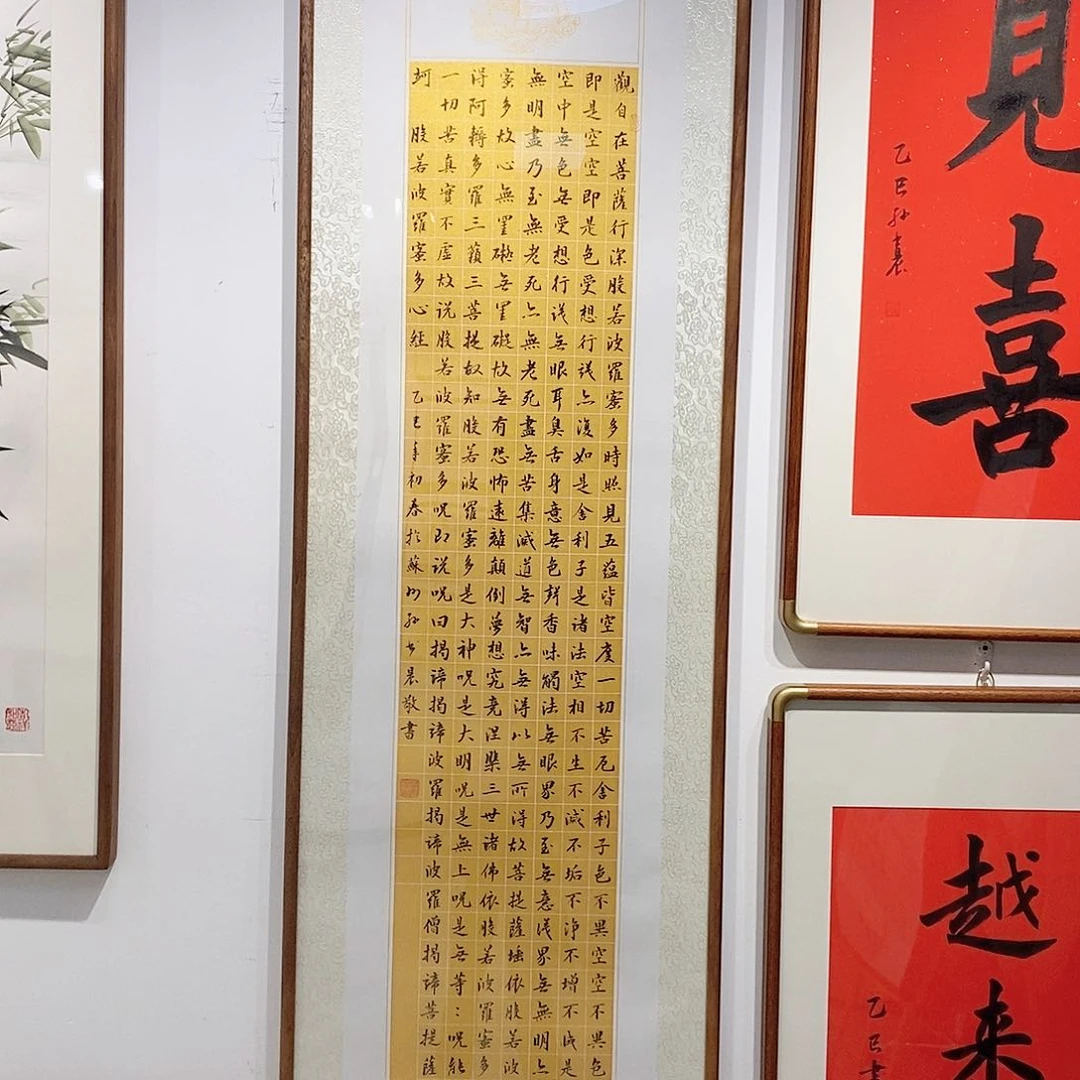 觀自在菩薩行深般若波羅蜜多時照見五蘊皆空度一切苦厄舍利子色不異空空不異色
即是空空即是色受想行識亦復如是舍利子是諸法空相不生不滅不垢不淨不增不減是
空中無色無受想行識無眼耳鼻舌身意無色聲香味觸法無眼界乃至無意識界無無明亦
無明盡乃至無老死亦無老死盡無苦集滅道無智亦無得以無所得故菩提薩埵依般若波
蜜多故心無罣礙無罣礙故無有恐怖遠離顛倒夢想究竟涅槃三世諸佛依般若波羅蜜多
得阿耨多羅三藐三菩提故知般若波羅蜜多是大神呪是大明呪是無上呪是無等：呪能
一切苦真實不虛故說般若波羅蜜多呪即說呪曰揭諦揭諦波羅揭諦波羅僧揭諦菩提薩
訶 般若波羅蜜多心經 乙巳年初春於蘇州孫書晨敬書
見喜
乙巳孫書晨
越来
乙巳書